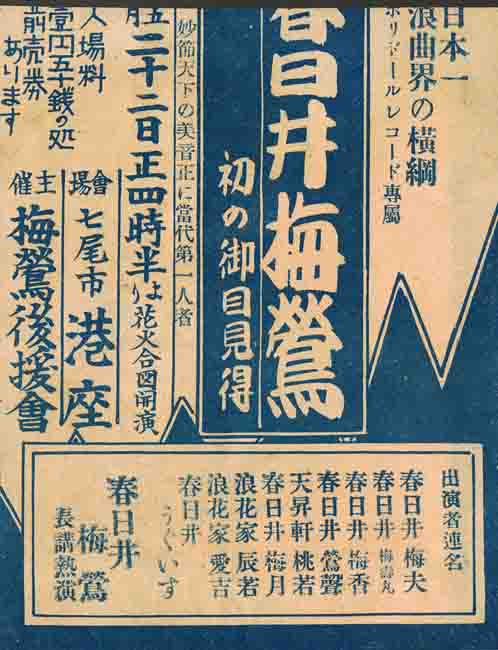 日本一
浪曲界の横綱
ポリドールレコード專屬
春日井梅鶯
初の御目見得
妙節天下の美音正に當代第一人者
二十二日正四時半より花火合図開演
會場 七尾市 港座
主催 梅鶯後援會
入場料
壹円五十銭の処
前売券
あります
出演者連名
春日井 梅夫
春日井 梅壽丸
春日井 梅香
春日井 鶯聲
天昇軒 桃若
春日井 梅月
浪花家 辰若
浪花家 愛吉
春日井 うぐいす
春日井 梅鶯
長講熱演